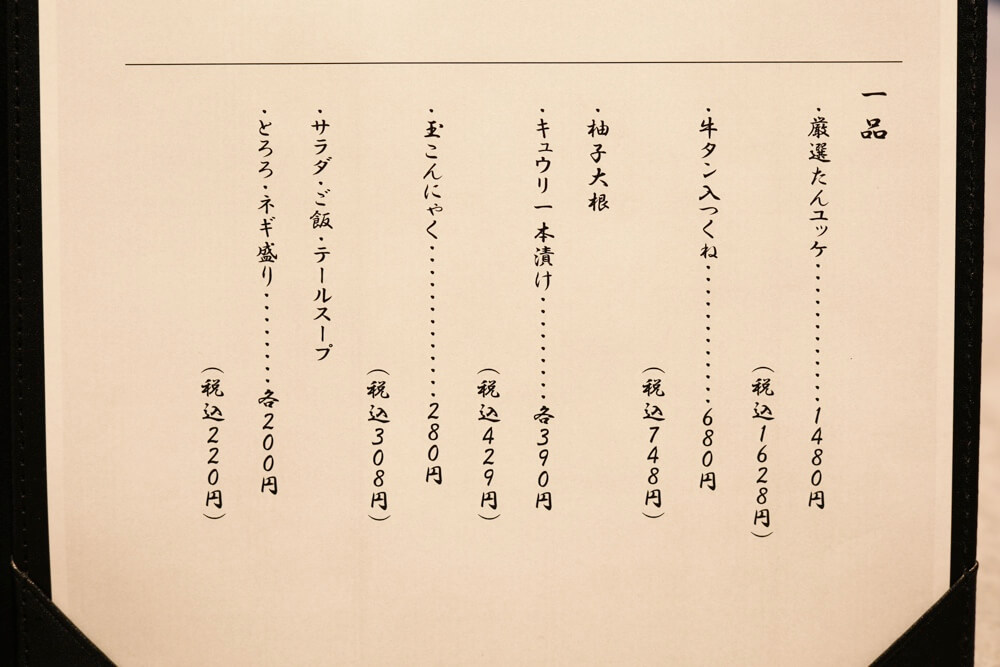 一品
・厳選たんユッケ・・・・・・・・・・・1480円
（税込1628円）
・牛タン入つくね・・・・・・・・・・・680円
（税込748円）
・柚子大根
・キュウリ一本漬け・・・・・・・・各390円
（税込429円）
・玉こんにゃく・・・・・・・・・・・・・280円
（税込308円）
・サラダ・ご飯・テールスープ
・とろろ・ネギ盛り・・・・・・・・各200円
（税込220円）